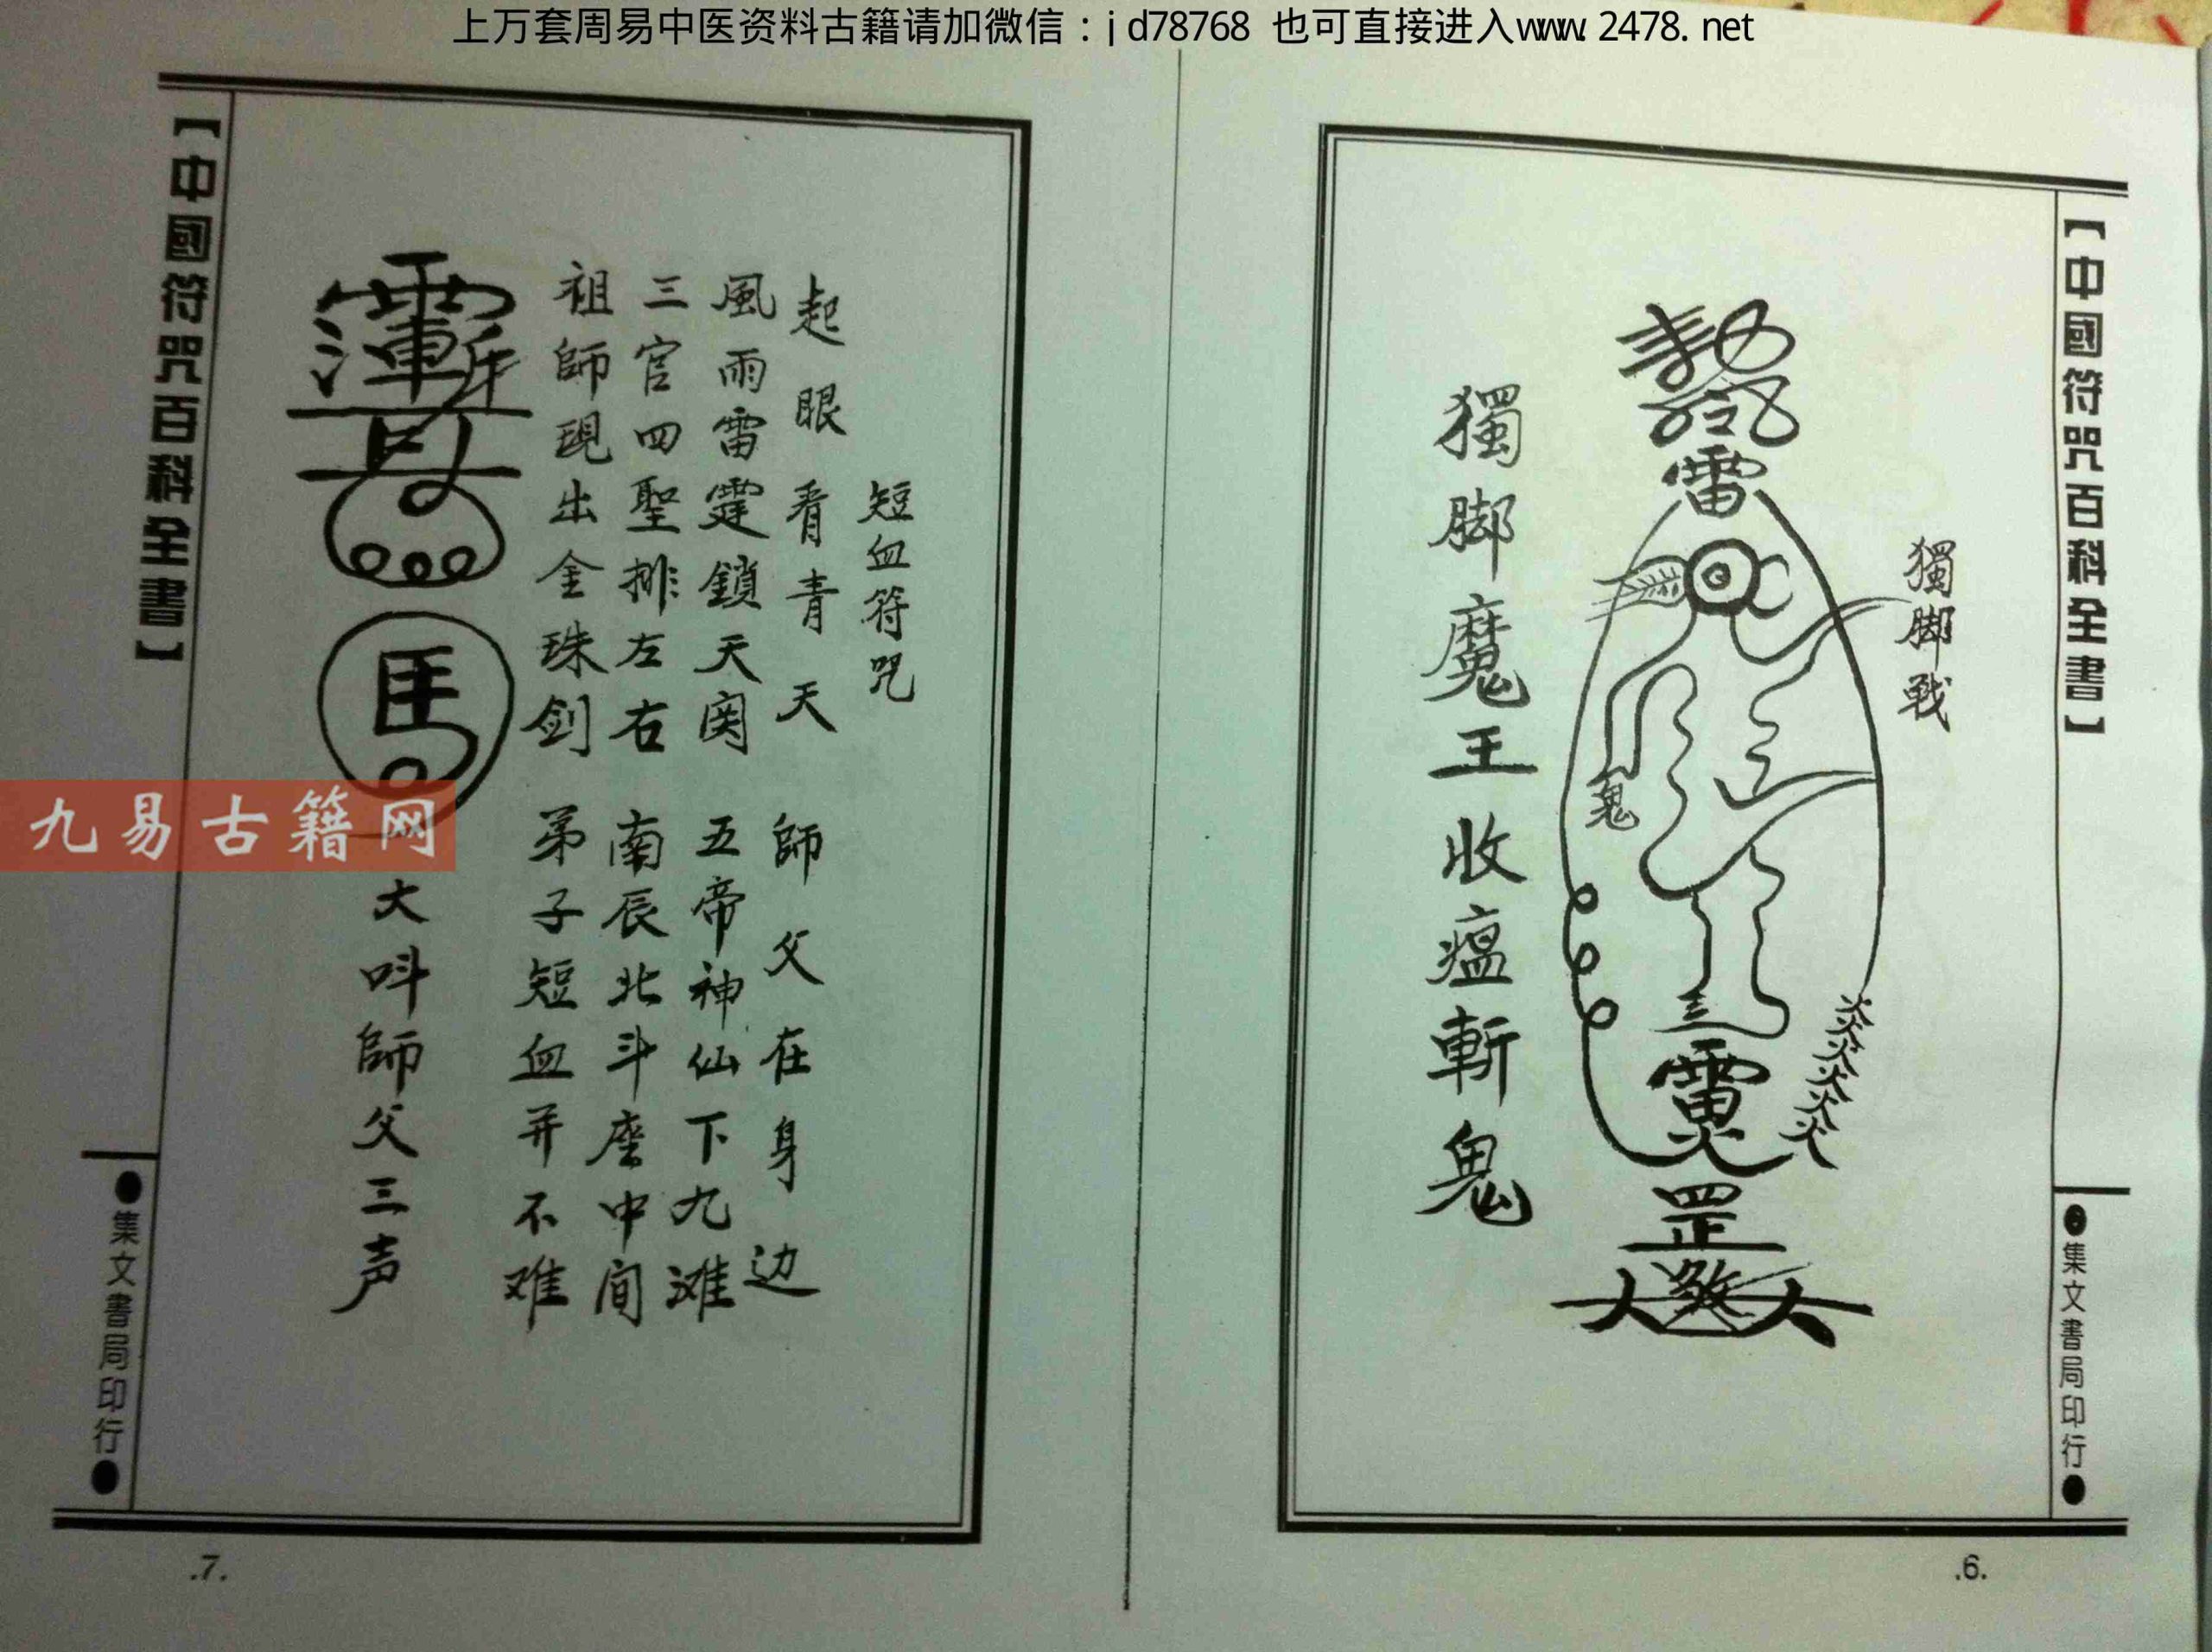 上万套周易中医资料古籍请加微信：jd78768 也可直接进入www.2478.net
【中國符咒百科全書】
●集文書局印行●
獨脚戟
雷
鬼
火火火火火火
罡
煞
獨脚魔王收瘟斬鬼
.6.
短血符咒
起眼看青天 師父在身边
風雨雷霆鎖天関 五帝神仙下九滩
三官四聖排左右 南辰北斗座中间
祖師現出金珠剑 弟子短血并不难
大呌師父三声
【中國符咒百科全書】
●集文書局印行●
.7.
九易古籍网